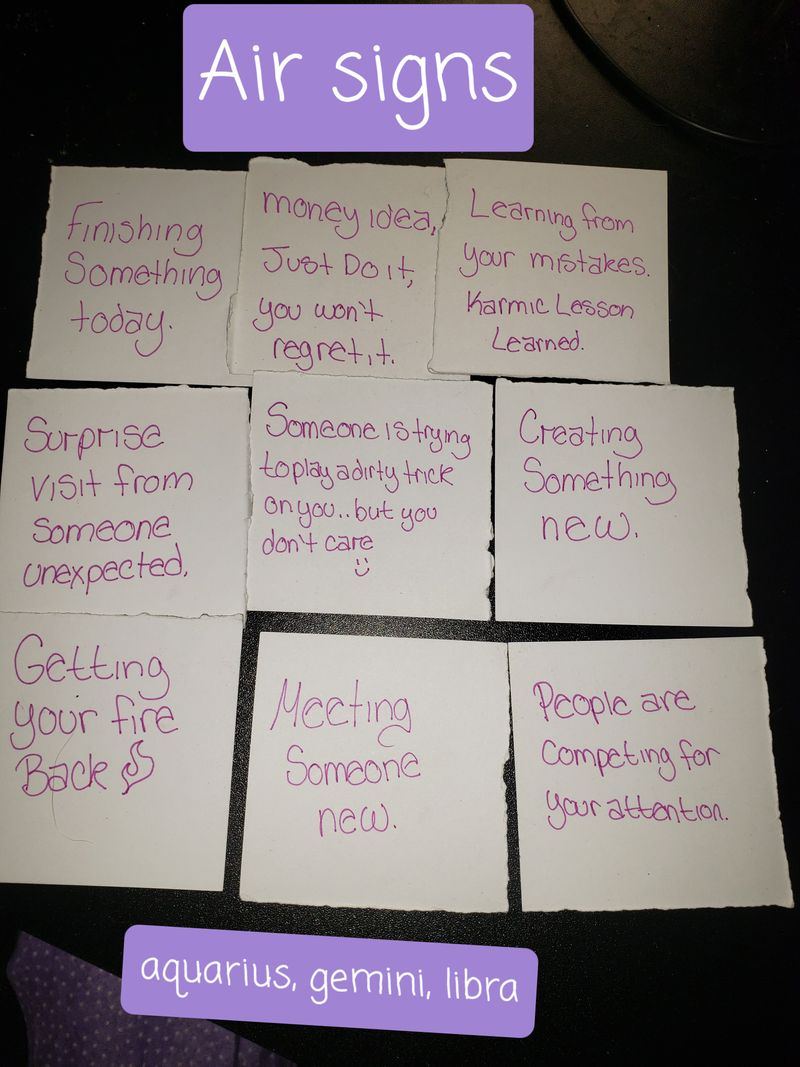 Air signs
Finishing
Something
today.
money idea,
Just Do it,
you won't
regret it.
Learning from
your mistakes.
Karmic Lesson
Learned.
Surprise
visit from
someone
unexpected.
Someone is trying
to play a dirty trick
on you.. but you
don't care
Creating
Something
new.
Getting
your fire
Back
Meeting
Someone
new.
People are
competing for
your attention.
aquarius, gemini, libra